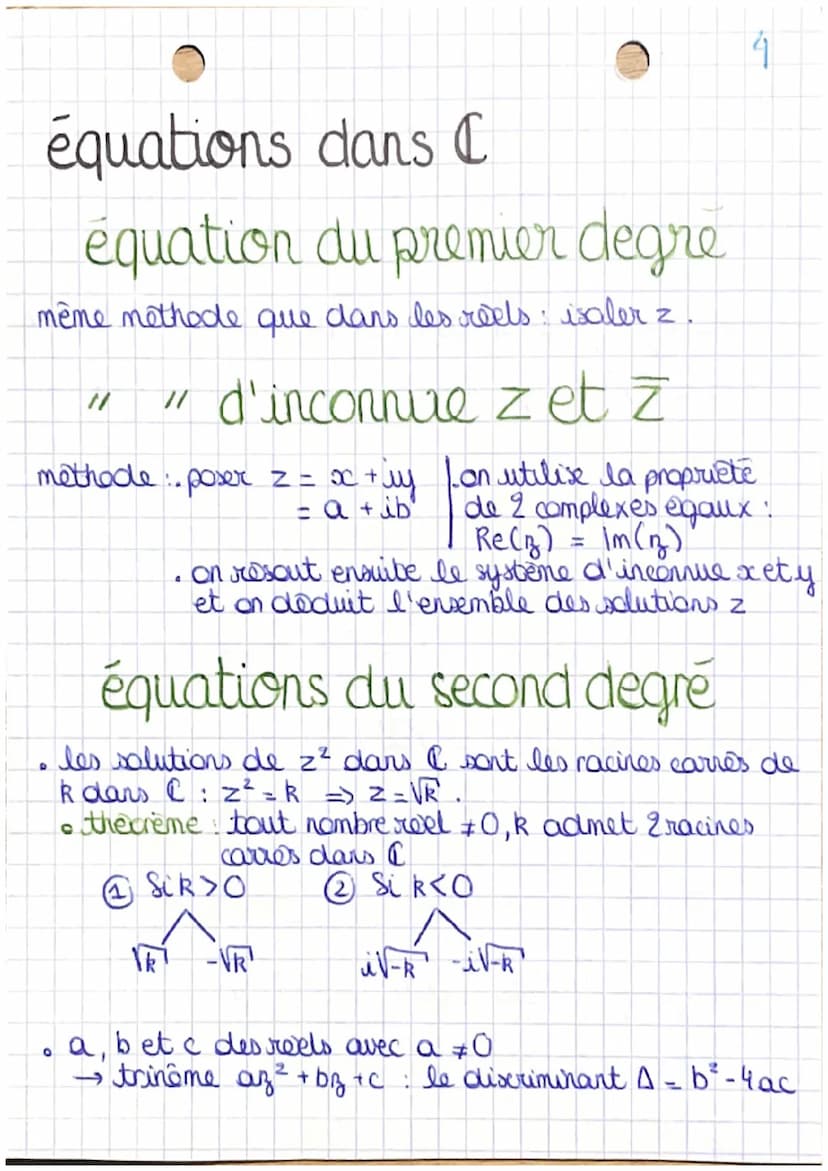 4
équations dans ℂ
équation du premier degré
même méthode que dans les réels : isoler z.
" " d'inconnue z et z̅
méthode : . poser z = x + iy
= a + ib
. on utilise la propriété
de 2 complexes égaux :
Re(z) = Im(z)
. on résout ensuite le système d'inconnue x et y
et on déduit l'ensemble des solutions z
équations du second degré
• les solutions de z² dans ℂ sont les racines carrés de
k dans ℂ : z² = k => z = √k .
• théorème : tout nombre réel ≠ 0, k admet 2 racines
carrés dans ℂ
① Si k > 0 ② Si k < 0
√k -√k i√-k -i√-k
• a, b et c des réels avec a ≠ 0
→ trinôme az² + bz + c : le discriminant Δ = b² - 4ac